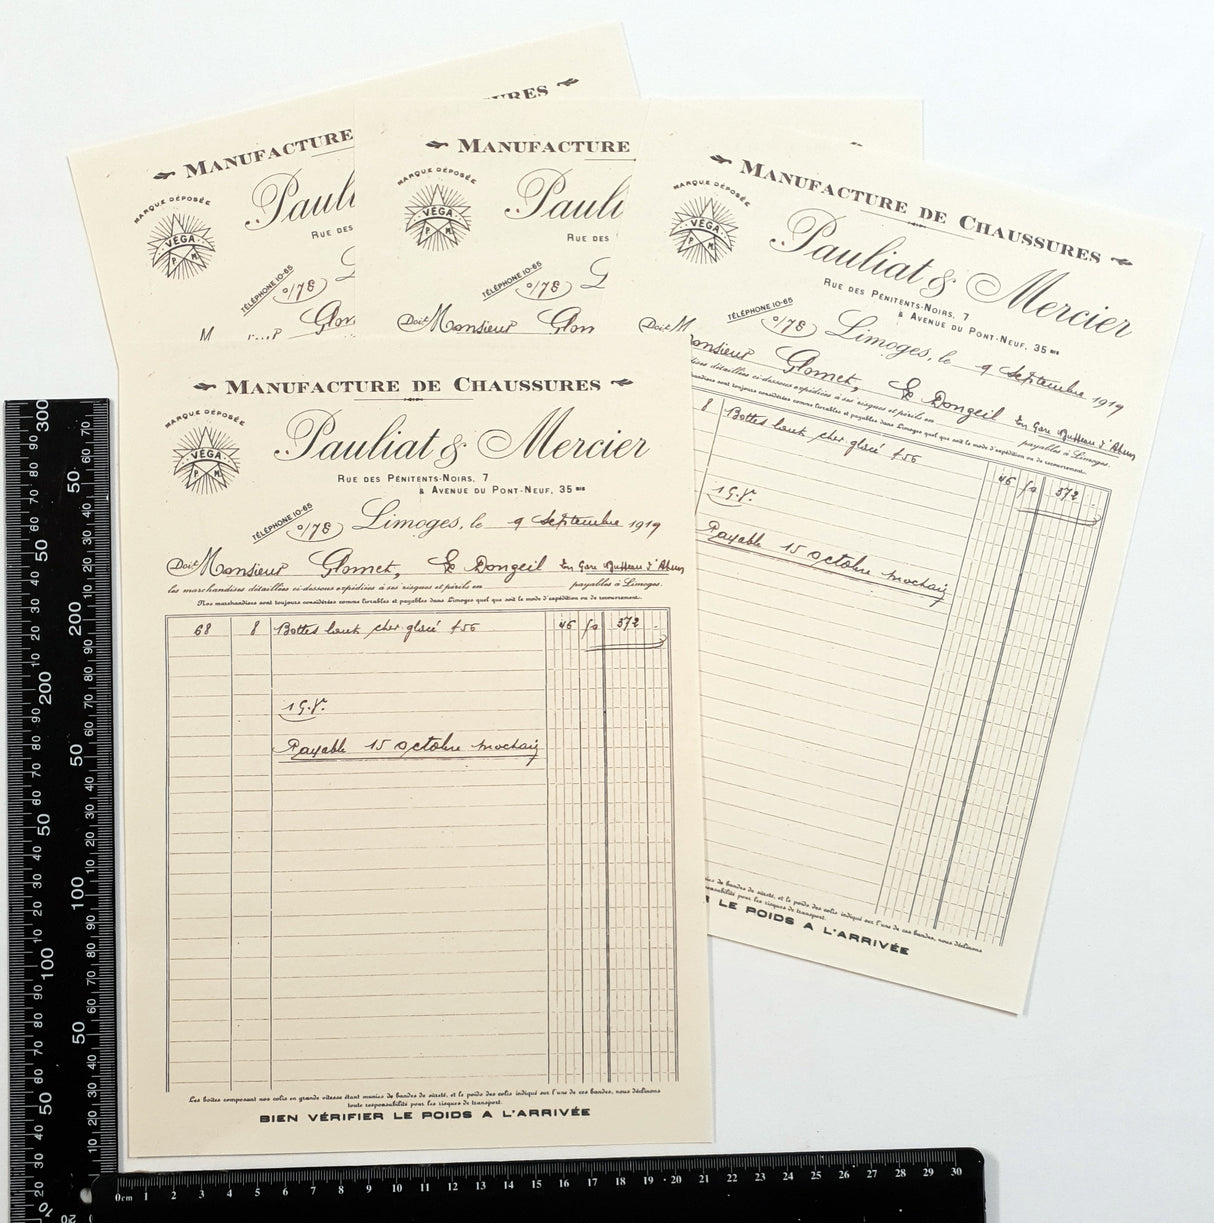 MANUFACTURES
MANUFACTURE
MARQUE DÉPOSÉE
VÉGA
P M
Pauli
RUE DES
TÉLÉPHONE 10-65
0/78
M
Glom
MANUFACTURE
MARQUE DÉPOSÉE
VÉGA
P M
Pauli
RUE DES
TÉLÉPHONE 10-65
0/78
Doit Monsieur Glom
MANUFACTURE DE CHAUSSURES
MARQUE DÉPOSÉE
VÉGA
P M
Pauliat & Mercier
RUE DES PÉNITENTS-NOIRS, 7
& AVENUE DU PONT-NEUF, 35 BIS
TÉLÉPHONE 10-65
0/78
Limoges, le 9 Septembre 1919
Doit Monsieur Glomet, Dongeil En Gare
détaillées ci-dessous expédiées à ses risques et périls en payables à Limoges.
marchandises sont toujours considérées comme livrables et payables dans Limoges quel que soit le mode d'expédition ou de recouvrement.
8 Bottes haut chev glacé 46 50 372
1 G.V.
Payable 15 Octobre prochain
de bandes de sûreté, et le poids des colis indiqué sur l'une de ces bandes, nous déclinons
responsabilité pour les risques de transport.
R LE POIDS A L'ARRIVÉE
MANUFACTURE DE CHAUSSURES
MARQUE DÉPOSÉE
VÉGA
P M
Pauliat & Mercier
RUE DES PÉNITENTS-NOIRS, 7
& AVENUE DU PONT-NEUF, 35 BIS
TÉLÉPHONE 10-65
0/78
Limoges, le 9 Septembre 1919
Doit Monsieur Glomet, Dongeil En Gare
les marchandises détaillées ci-dessous expédiées à ses risques et périls en payables à Limoges.
Nos marchandises sont toujours considérées comme livrables et payables dans Limoges quel que soit le mode d'expédition ou de recouvrement.
68 8 Bottes haut chev glacé 46 50 372
1 G.V.
Payable 15 Octobre prochain
Les boîtes composant nos colis en grande vitesse étant munies de bandes de sûreté, et le poids des colis indiqué sur l'une de ces bandes, nous déclinons
toute responsabilité pour les risques de transport.
BIEN VÉRIFIER LE POIDS A L'ARRIVÉE
0cm 1 2 3 4 5 6 7 8 9 10 11 12 13 14 15 16 17 18 19 20 21 22 23 24 25 26 27 28 29 30